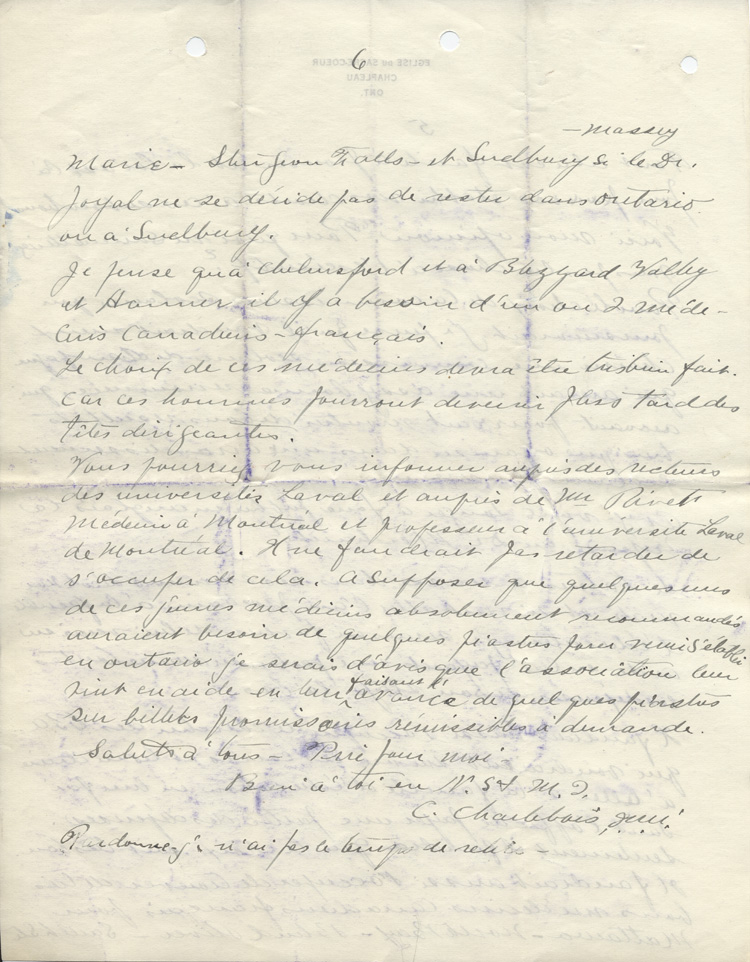 6
EGLISE DU SACRE-COEUR
CHAPLEAU
ONT.
- Massey
Marie - Sturgeon Falls - et Sudbury si le Dr.
Joyal ne se décide pas de rester dans Ontario
ou à Sudbury.
Je pense qu'à Chelmsford et à Blezzard Valley
et Hanmer il y a besoin d'un ou 2 méde-
cins canadiens-français.
Le choix de ces médecins devra être très bien fait.
Car ces hommes pourront devenir plus tard des
têtes dirigeantes.
Vous pourriez vous informer auprès des recteurs
des universités Laval et auprès de Mr Rivet
médecin à Montréal et professeur à l'université Laval
de Montréal. Il ne faudrait pas retarder de
s'occuper de cela. A supposer que quelques uns
de ces jeunes médecins absolument recommandés
auraient besoin de quelques piastres pour venir s'établir
en Ontario je serais d'avis que l'association leur
vint en aide en leur faisant l'avance de quelques piastres
sur billets promissoires rémissibles à demande.
Saluts à tous - Prie pour moi
Bien à toi en N.S. & M.I.
C. Charlebois, o.m.i.
Pardonne - je n'ai pas le temps de relire -